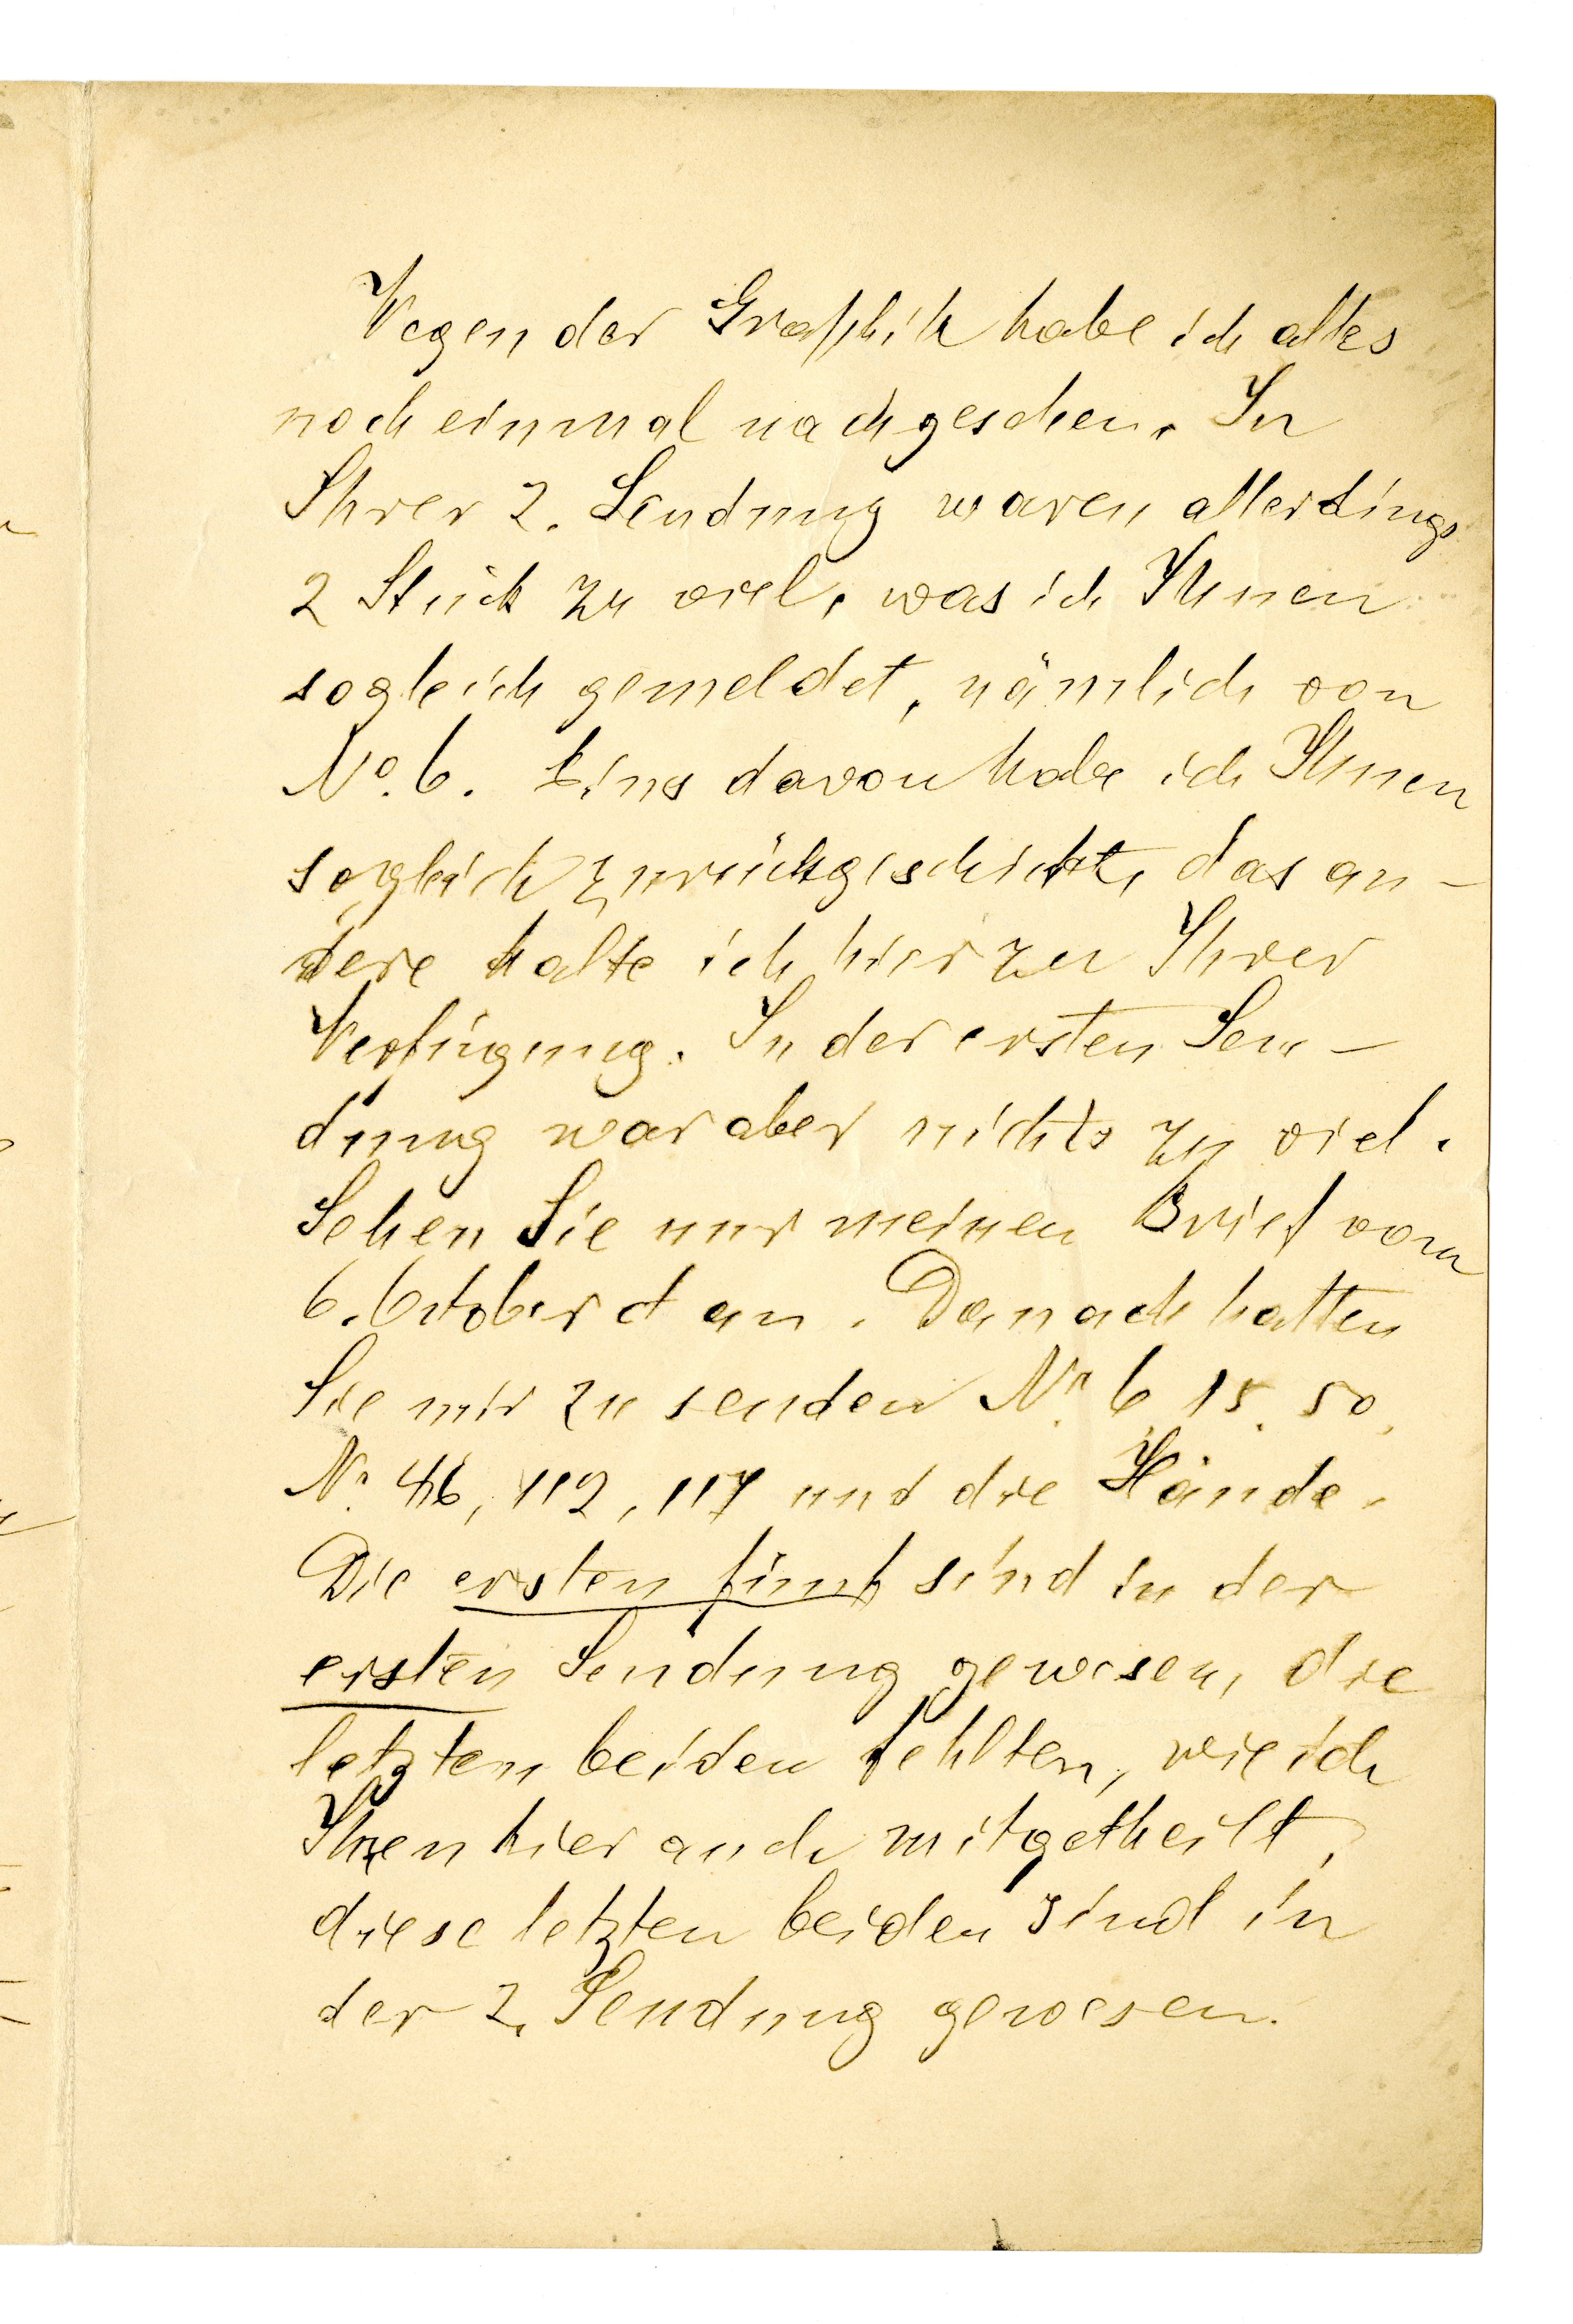 Wegen der Graphik habe ich alles
noch einmal nachgesehen. In
Ihrer 2. Sendung waren allerdings
2 Stück zu viel, was ich Ihnen
sogleich gemeldet, nämlich von
No. 6. Eins davon habe ich Ihnen
sogleich zurückgeschickt, das an-
dere halte ich hier zu Ihrer
Verfügung. In der ersten Sen-
dung war aber nichts zu viel.
Sehen Sie nur meinen Brief vom
6. October d an. Danach hatten
Sie mir zu senden No. 6. 15. 50,
No. 46, 112, 117 und die Hände.
Die ersten fünf sind in der
ersten Sendung gewesen, die
letzten beiden fehlten, wie ich
Ihnen hier auch mitgetheilt,
diese letzten beiden sind in
der 2. Sendung gewesen.